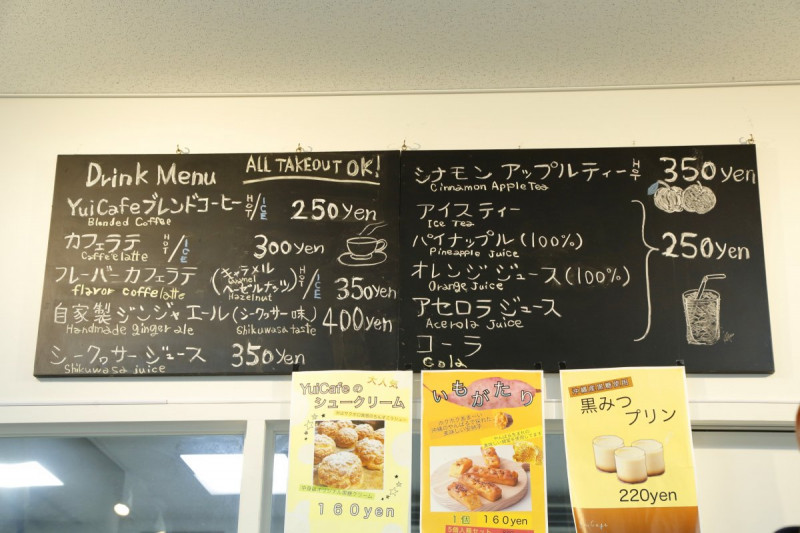 Drink Menu ALL TAKEOUT OK!
YuiCafeブレンドコーヒー HOT/ICE 250yen
Blended Coffee
カフェラテ HOT/ICE 300yen
Caffe latte
フレーバーカフェラテ (キャラメル ヘーゼルナッツ) HOT/ICE 350yen
flavor coffelatte Caramel Hazelnut
自家製ジンジャエール (シークヮサー味) 400yen
Handmade ginger ale Shikuwasa taste
シークヮサージュース 350yen
Shikuwasa juice
シナモン アップルティー HOT 350yen
Cinnamon Apple Tea
アイスティー
Ice Tea
パイナップル (100%) 250yen
Pineapple Juice
オレンジジュース (100%)
Orange Juice
アセロラジュース
Acerola Juice
コーラ
Cola
大人気
YuiCafeの
シュークリーム
160yen
いもがたり
1個 160yen
5個入り セット
沖縄産黒糖使用
黒みつ
プリン
220yen
YuiCafe